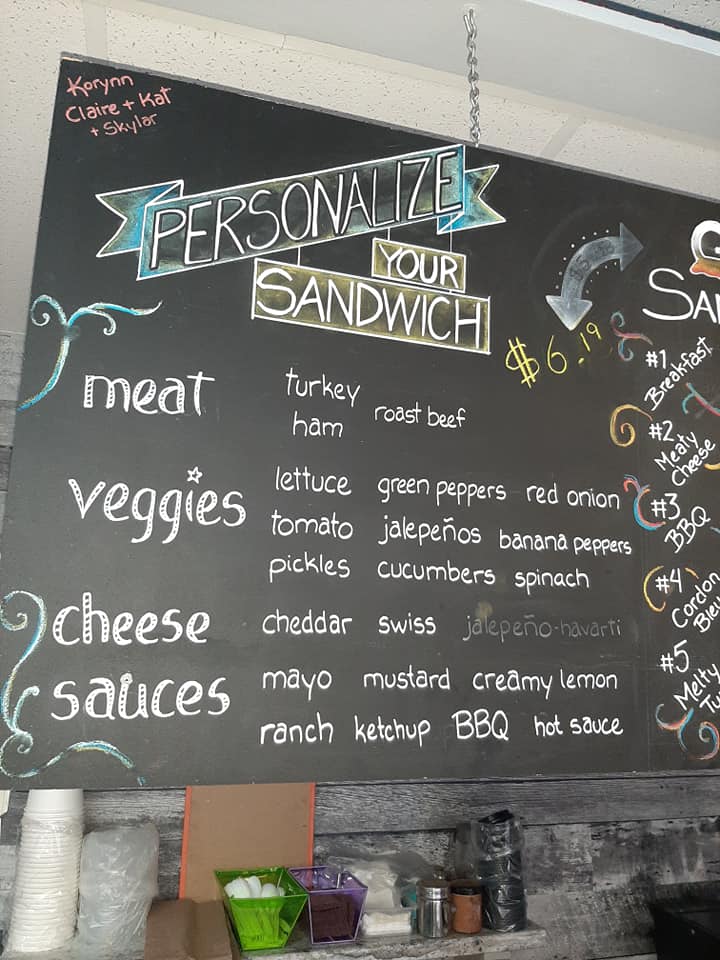 Korynn
Claire + Kat
+ Skylar
PERSONALIZE
YOUR
SANDWICH
$6.19
meat
turkey
ham
roast beef
veggies
lettuce green peppers red onion
tomato jalepeños banana peppers
pickles cucumbers spinach
cheese
cheddar swiss jalepeño-havarti
sauces
mayo mustard creamy lemon
ranch ketchup BBQ hot sauce
#1
Breakfast
#2
Meaty
Cheese
#3
BBQ
#4
Cordon
#5
Melty